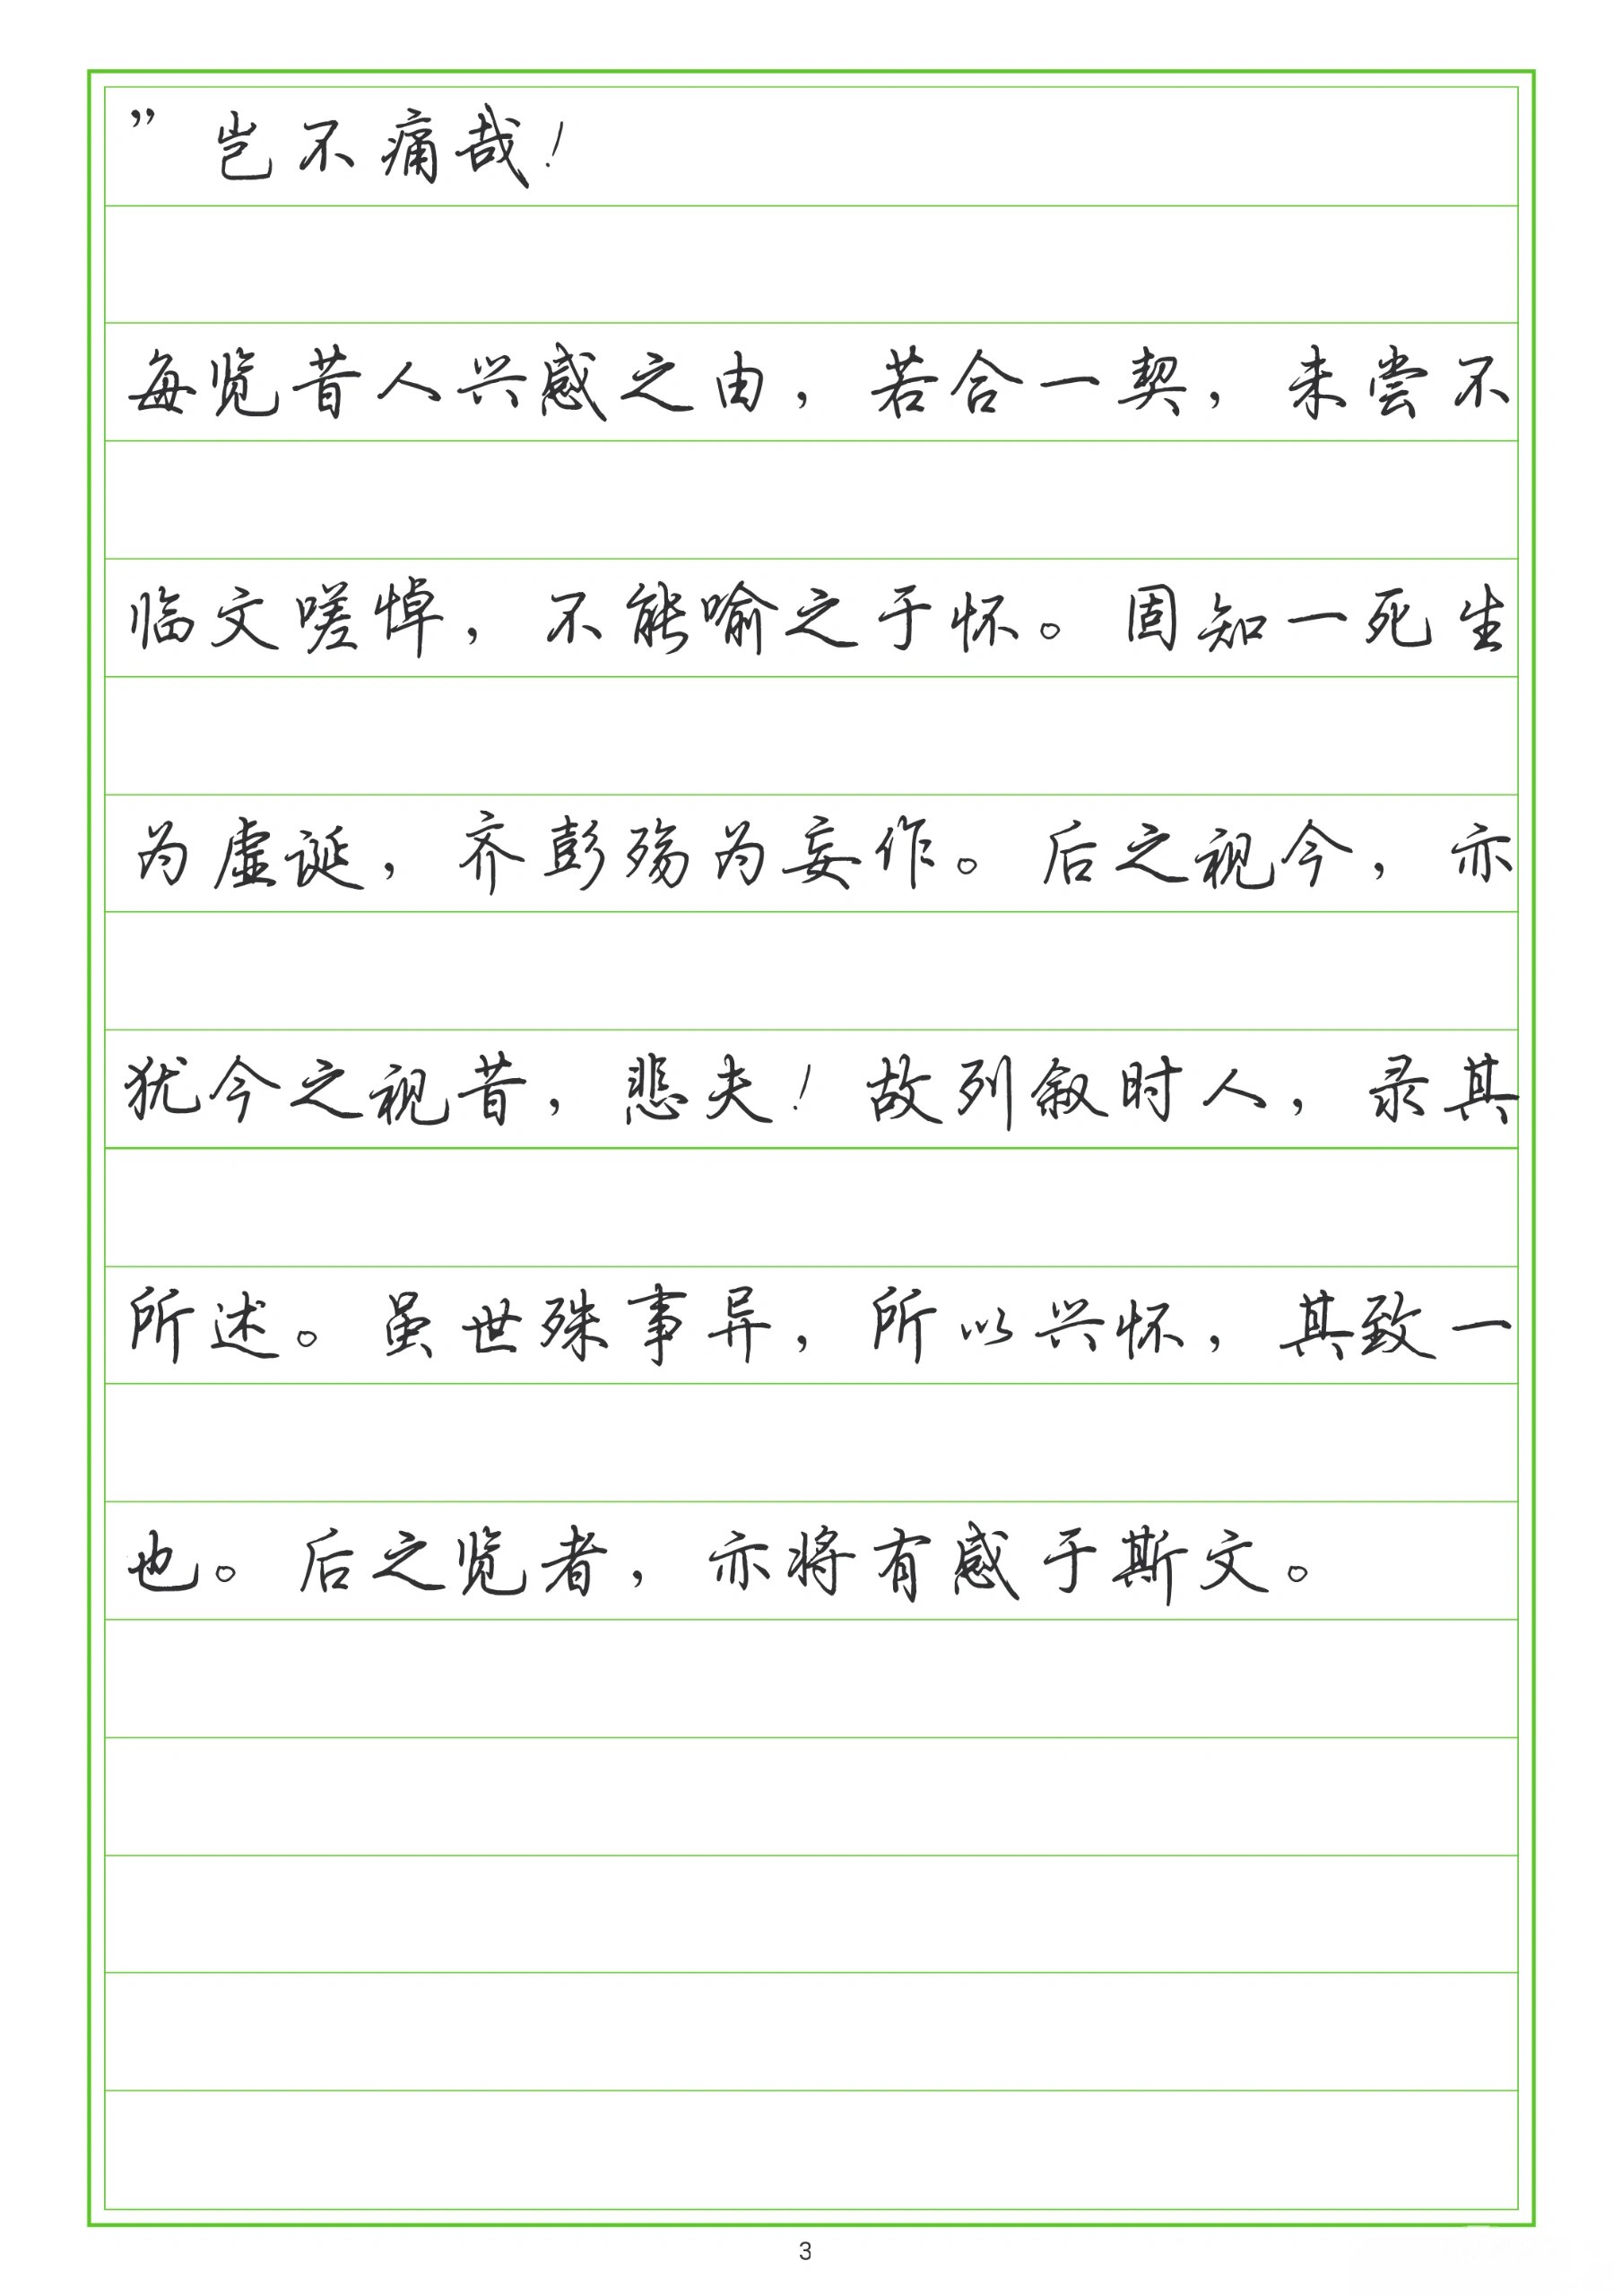 ”岂不痛哉！
每览昔人兴感之由，若合一契，未尝不
临文嗟悼，不能喻之于怀。固知一死生
为虚诞，齐彭殇为妄作。后之视今，亦
犹今之视昔，悲夫！故列叙时人，录其
所述。虽世殊事异，所以兴怀，其致一
也。后之览者，亦将有感于斯文。
3